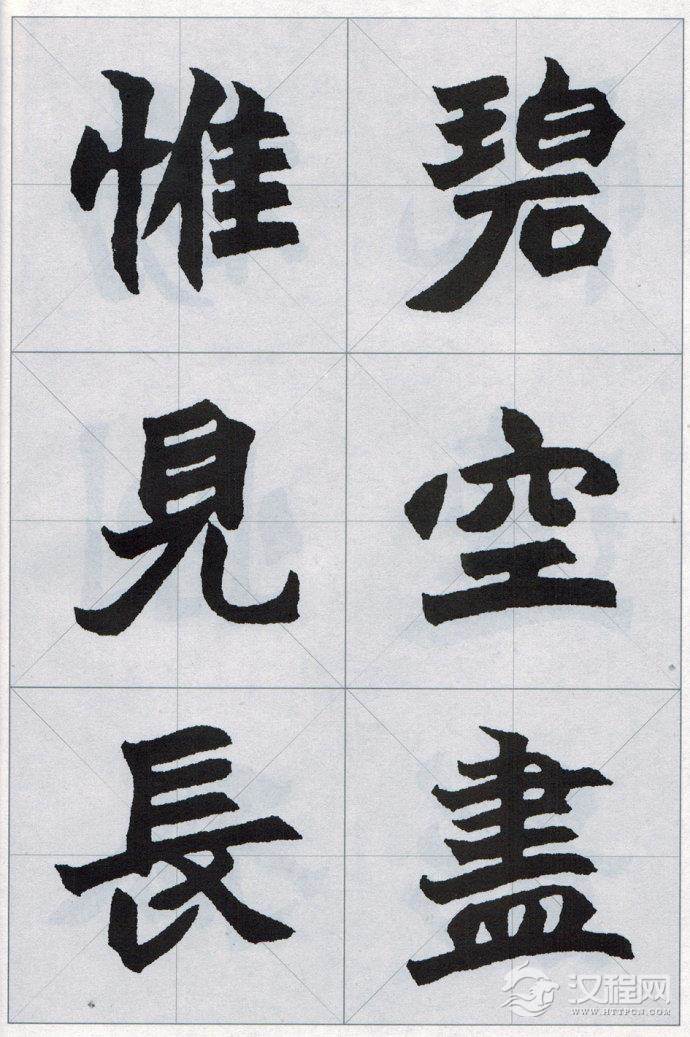 碧空盡
惟見長
汉程网
WWW.HTTPCN.COM